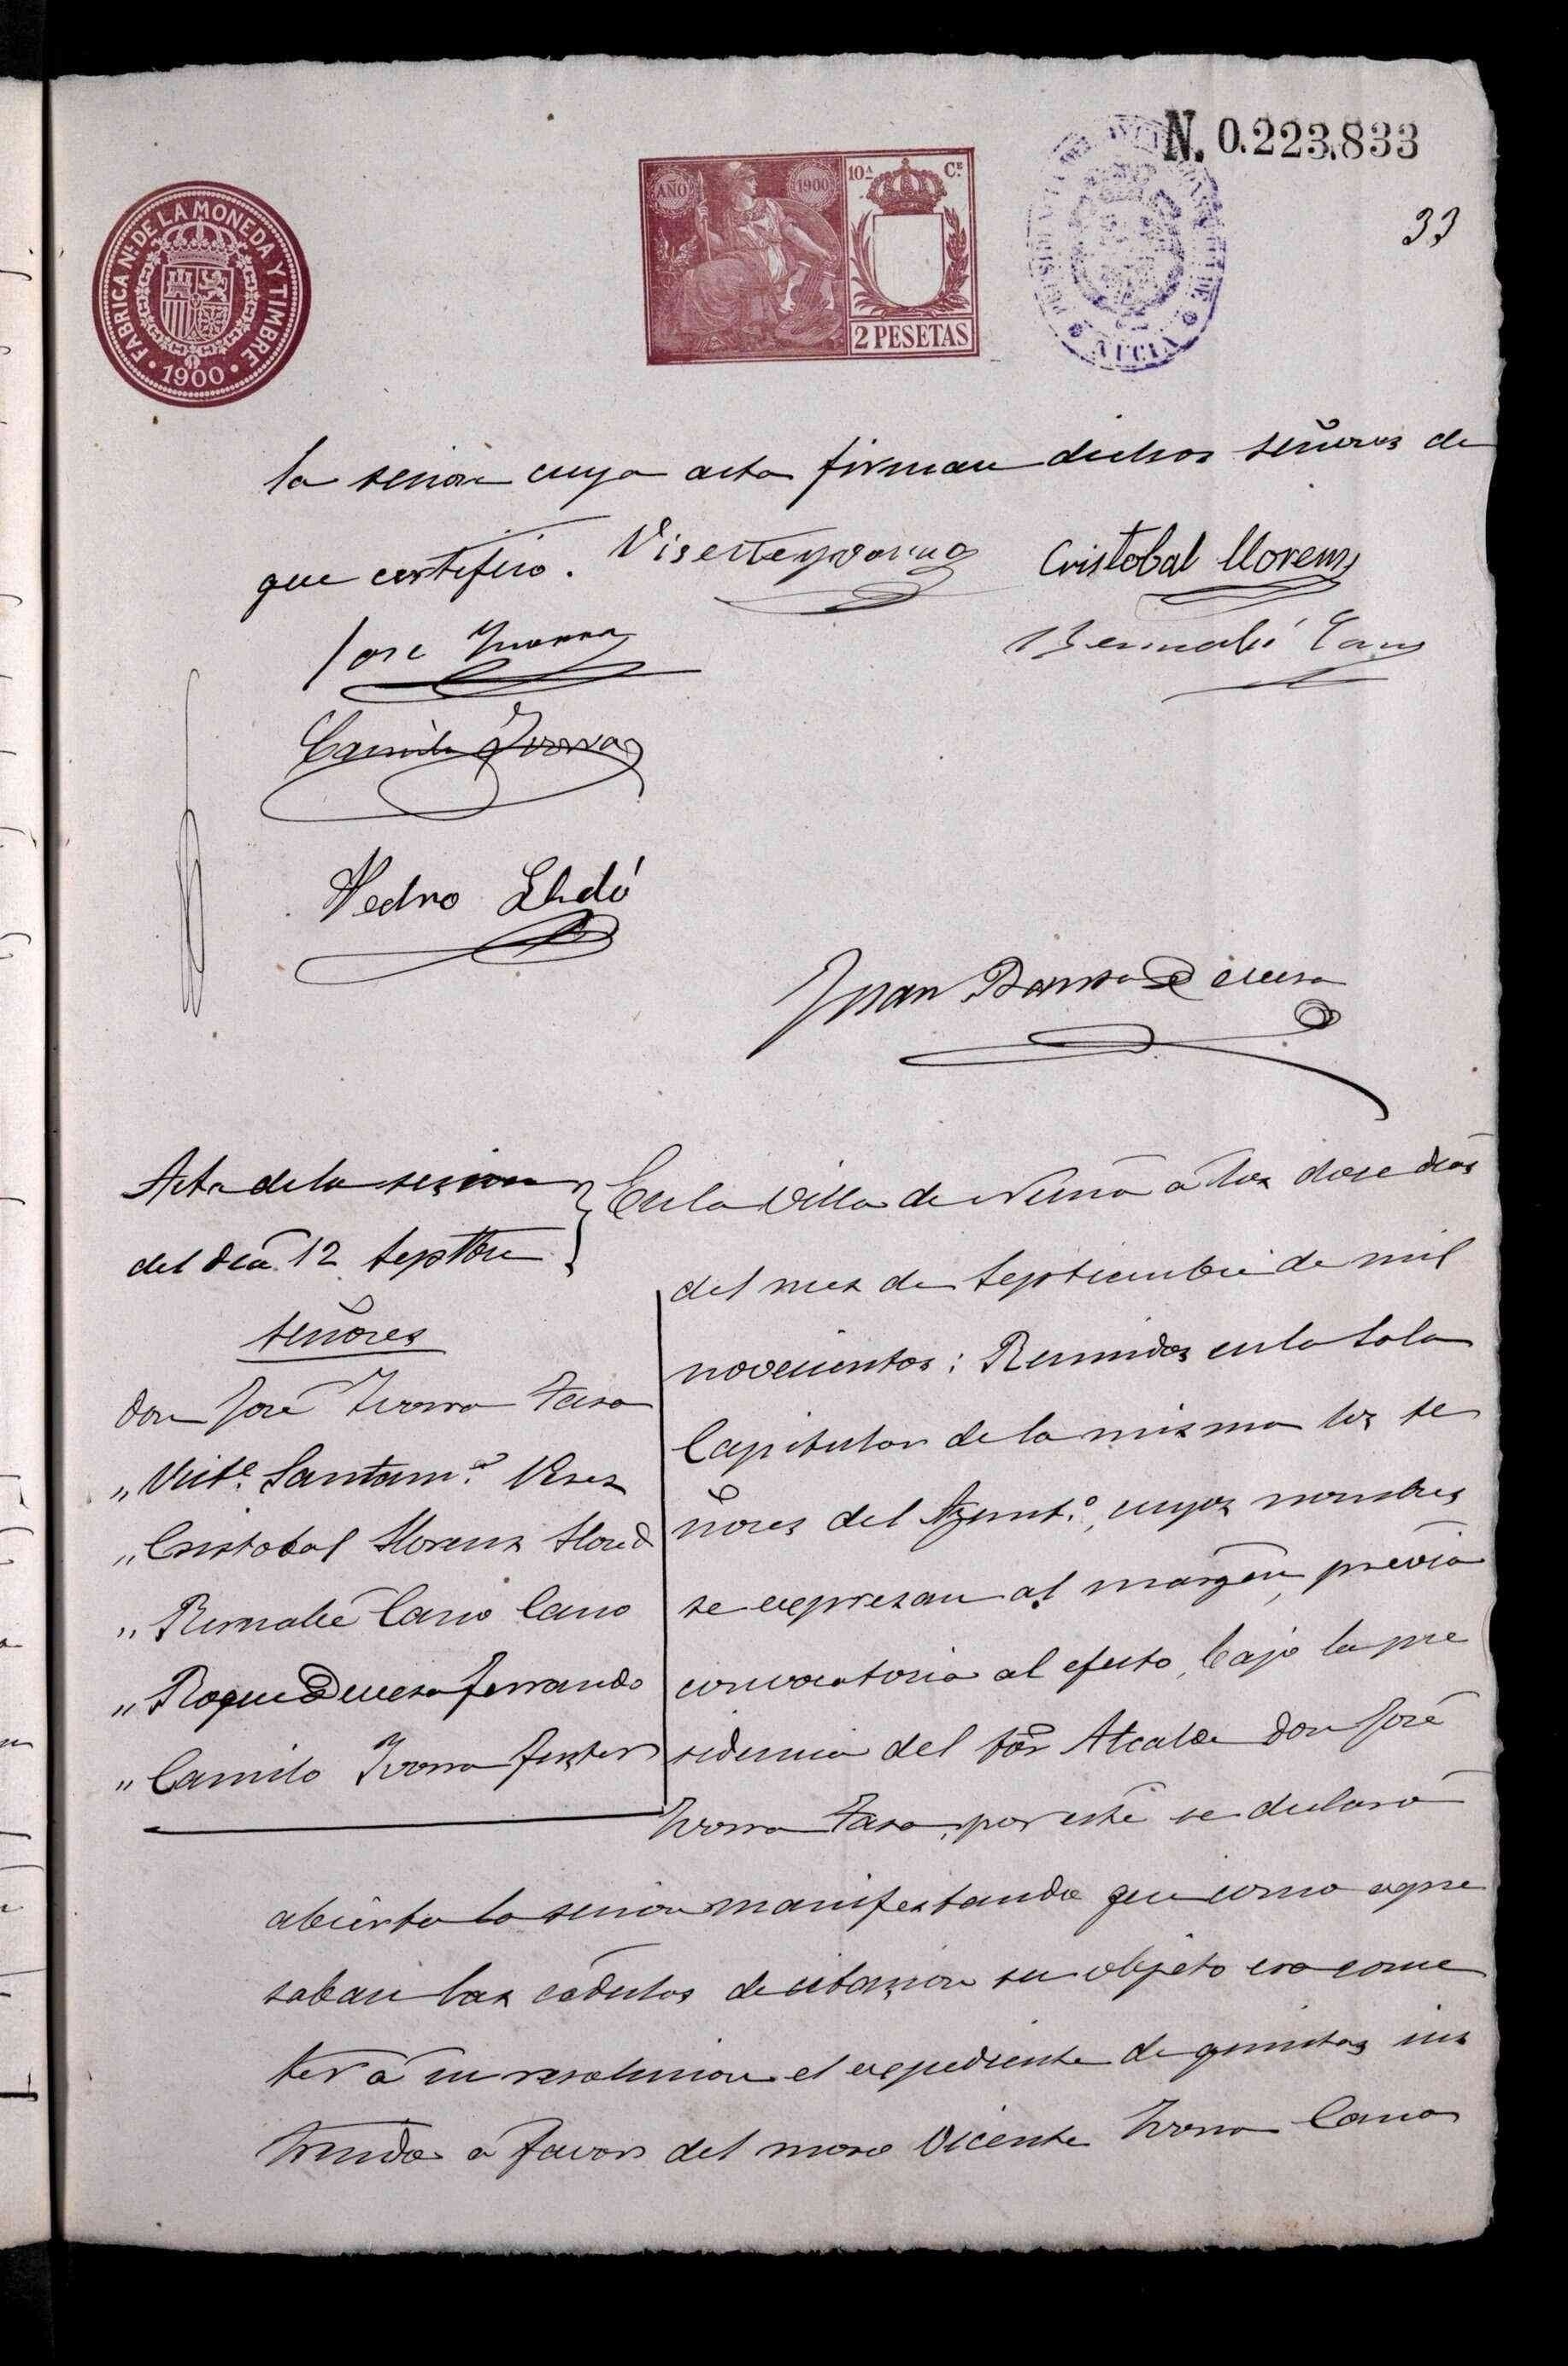 N. 0.223.833
33
FABRICA NL DE LA MONEDA Y TIMBRE
1900
AÑO 1900
10ᴬ Cᴱ
2 PESETAS
NUCIA
la sesion cuya acta firman dichos señores de
que certifico.
Cristobal Llorens
Jose Yvorra
Bernabé Cano
Camilo Yvorra
Pedro Lledó
Juan Bauta Devesa
Acta de la sesion
del dia 12 Septbre
señores
don José Yvorra
" Victe. Santamª. Peres
" Cristobal Llorens Llored
" Bernabé Cano Cano
" Roque Devesa Ferrando
" Camilo Yvorra Fuster
En la Villa de Nucia á los dose dias
del mes de Septiembre de mil
novecientos: Reunidos en la Sala
Capitular de la misma los se
ñores del Ayuntº., cuyos nombres
se expresan al margen, previa
convocatoria al efecto, bajo la pre
sidencia del Sor Alcalde don José
Yvorra, por este se declaró
abierta la sesion manifestando que como expre
saban las cédulas de citasion su objeto era some
ter á su resolusion el expediente de quintas ins
truido á favor del moso Vicente Yvorra Cano